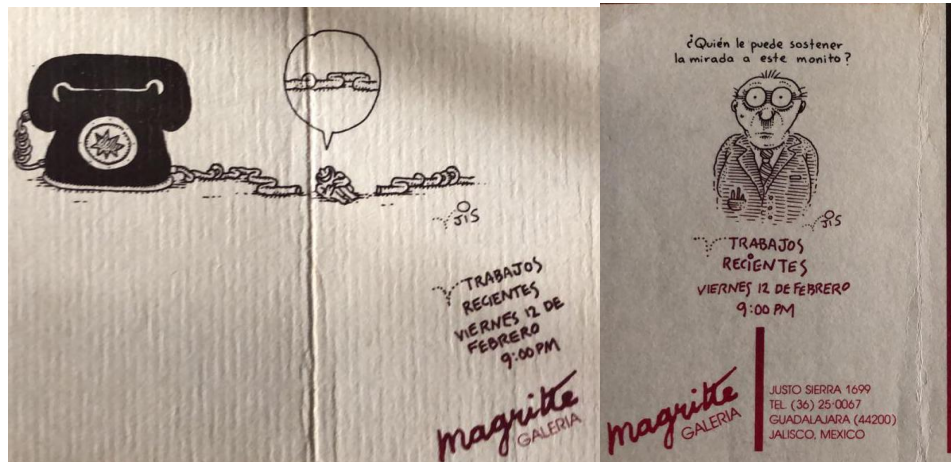 JIS
TRABAJOS
RECIENTES
VIERNES 12 DE
FEBRERO
9:00 PM
magritte
GALERIA
¿Quién le puede sostener
la mirada a este monito?
JIS
TRABAJOS
RECIENTES
VIERNES 12 DE FEBRERO
9:00 PM
magritte
GALERIA
JUSTO SIERRA 1699
TEL (36) 25-0067
GUADALAJARA (44200)
JALISCO, MEXICO